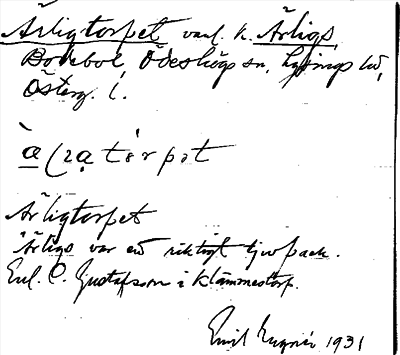 Ärligtorpet vanl. k. Ärligs
Bodebol Ödeshögs sn, Lysings hd,
Österg. l.
Ärligtorpet
Ärligs var ett riktigt tjuvpack.
Enl. C. Gustafsson i Klämmestorp.
Emil 1931